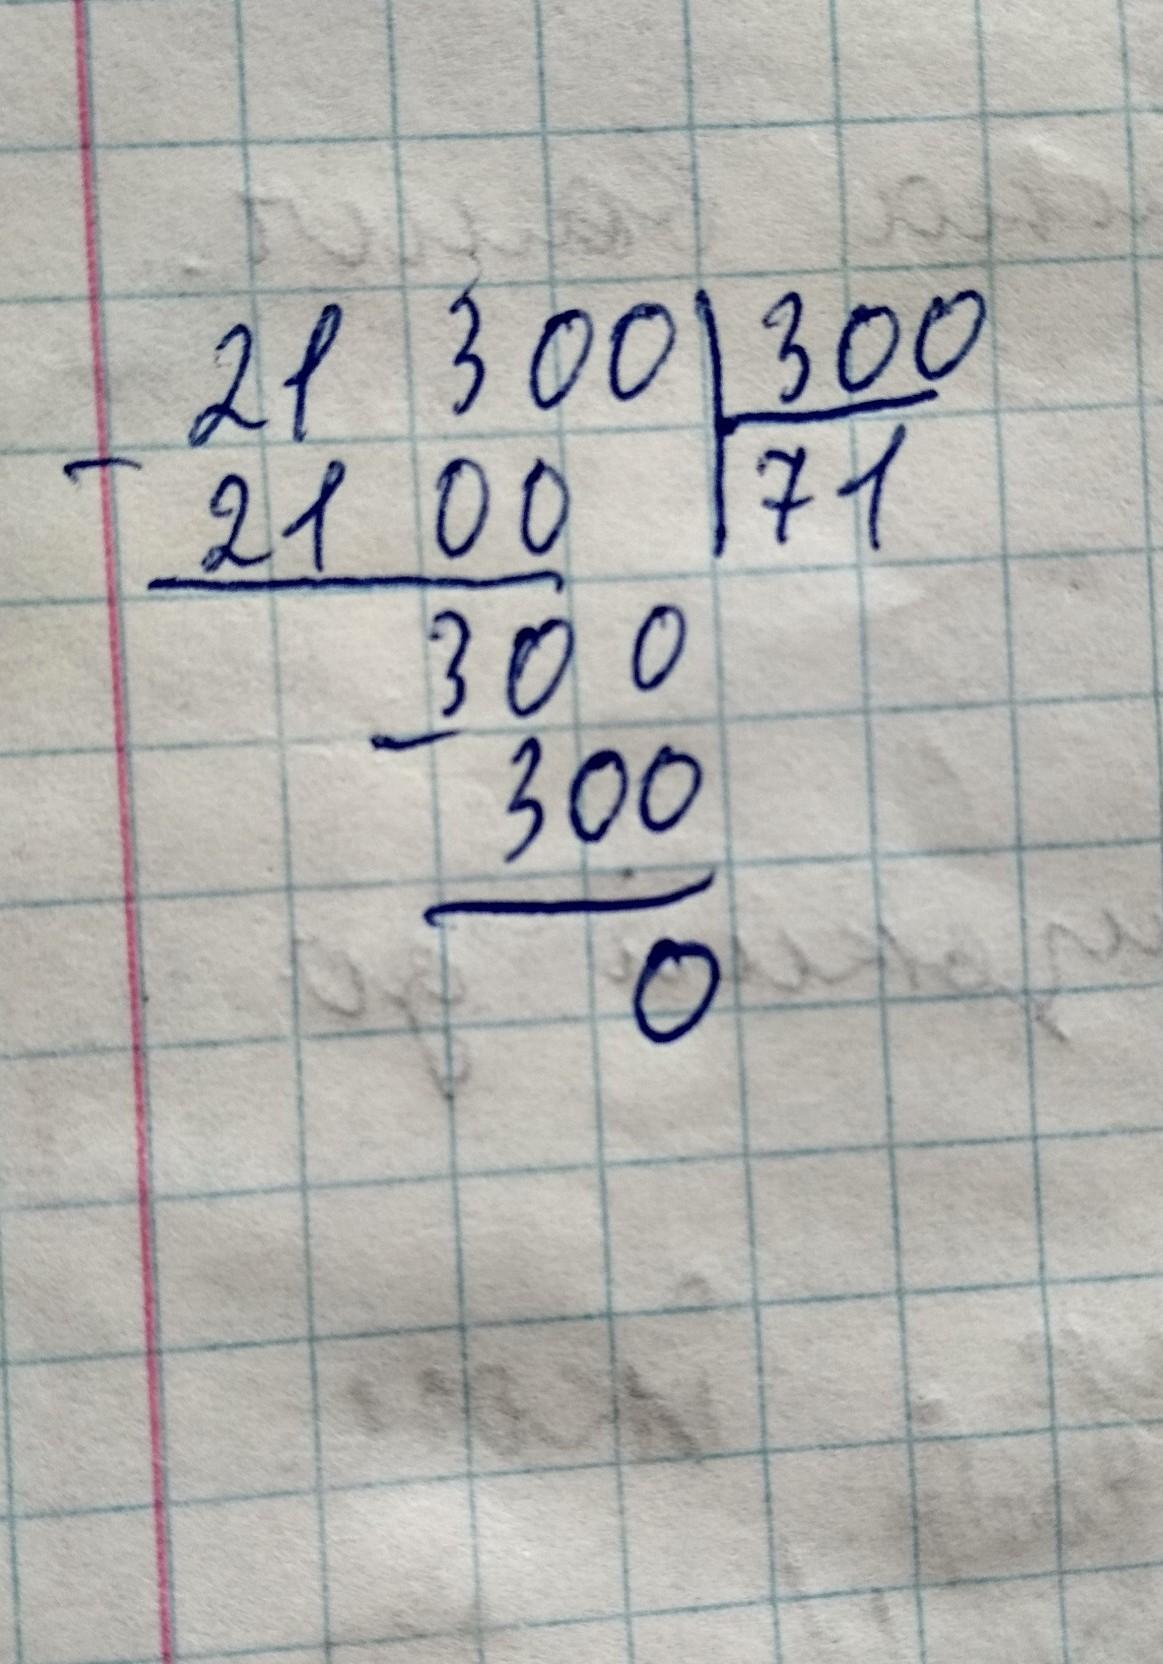 21 300 | 300
- 2100 | 71
300
- 300
0